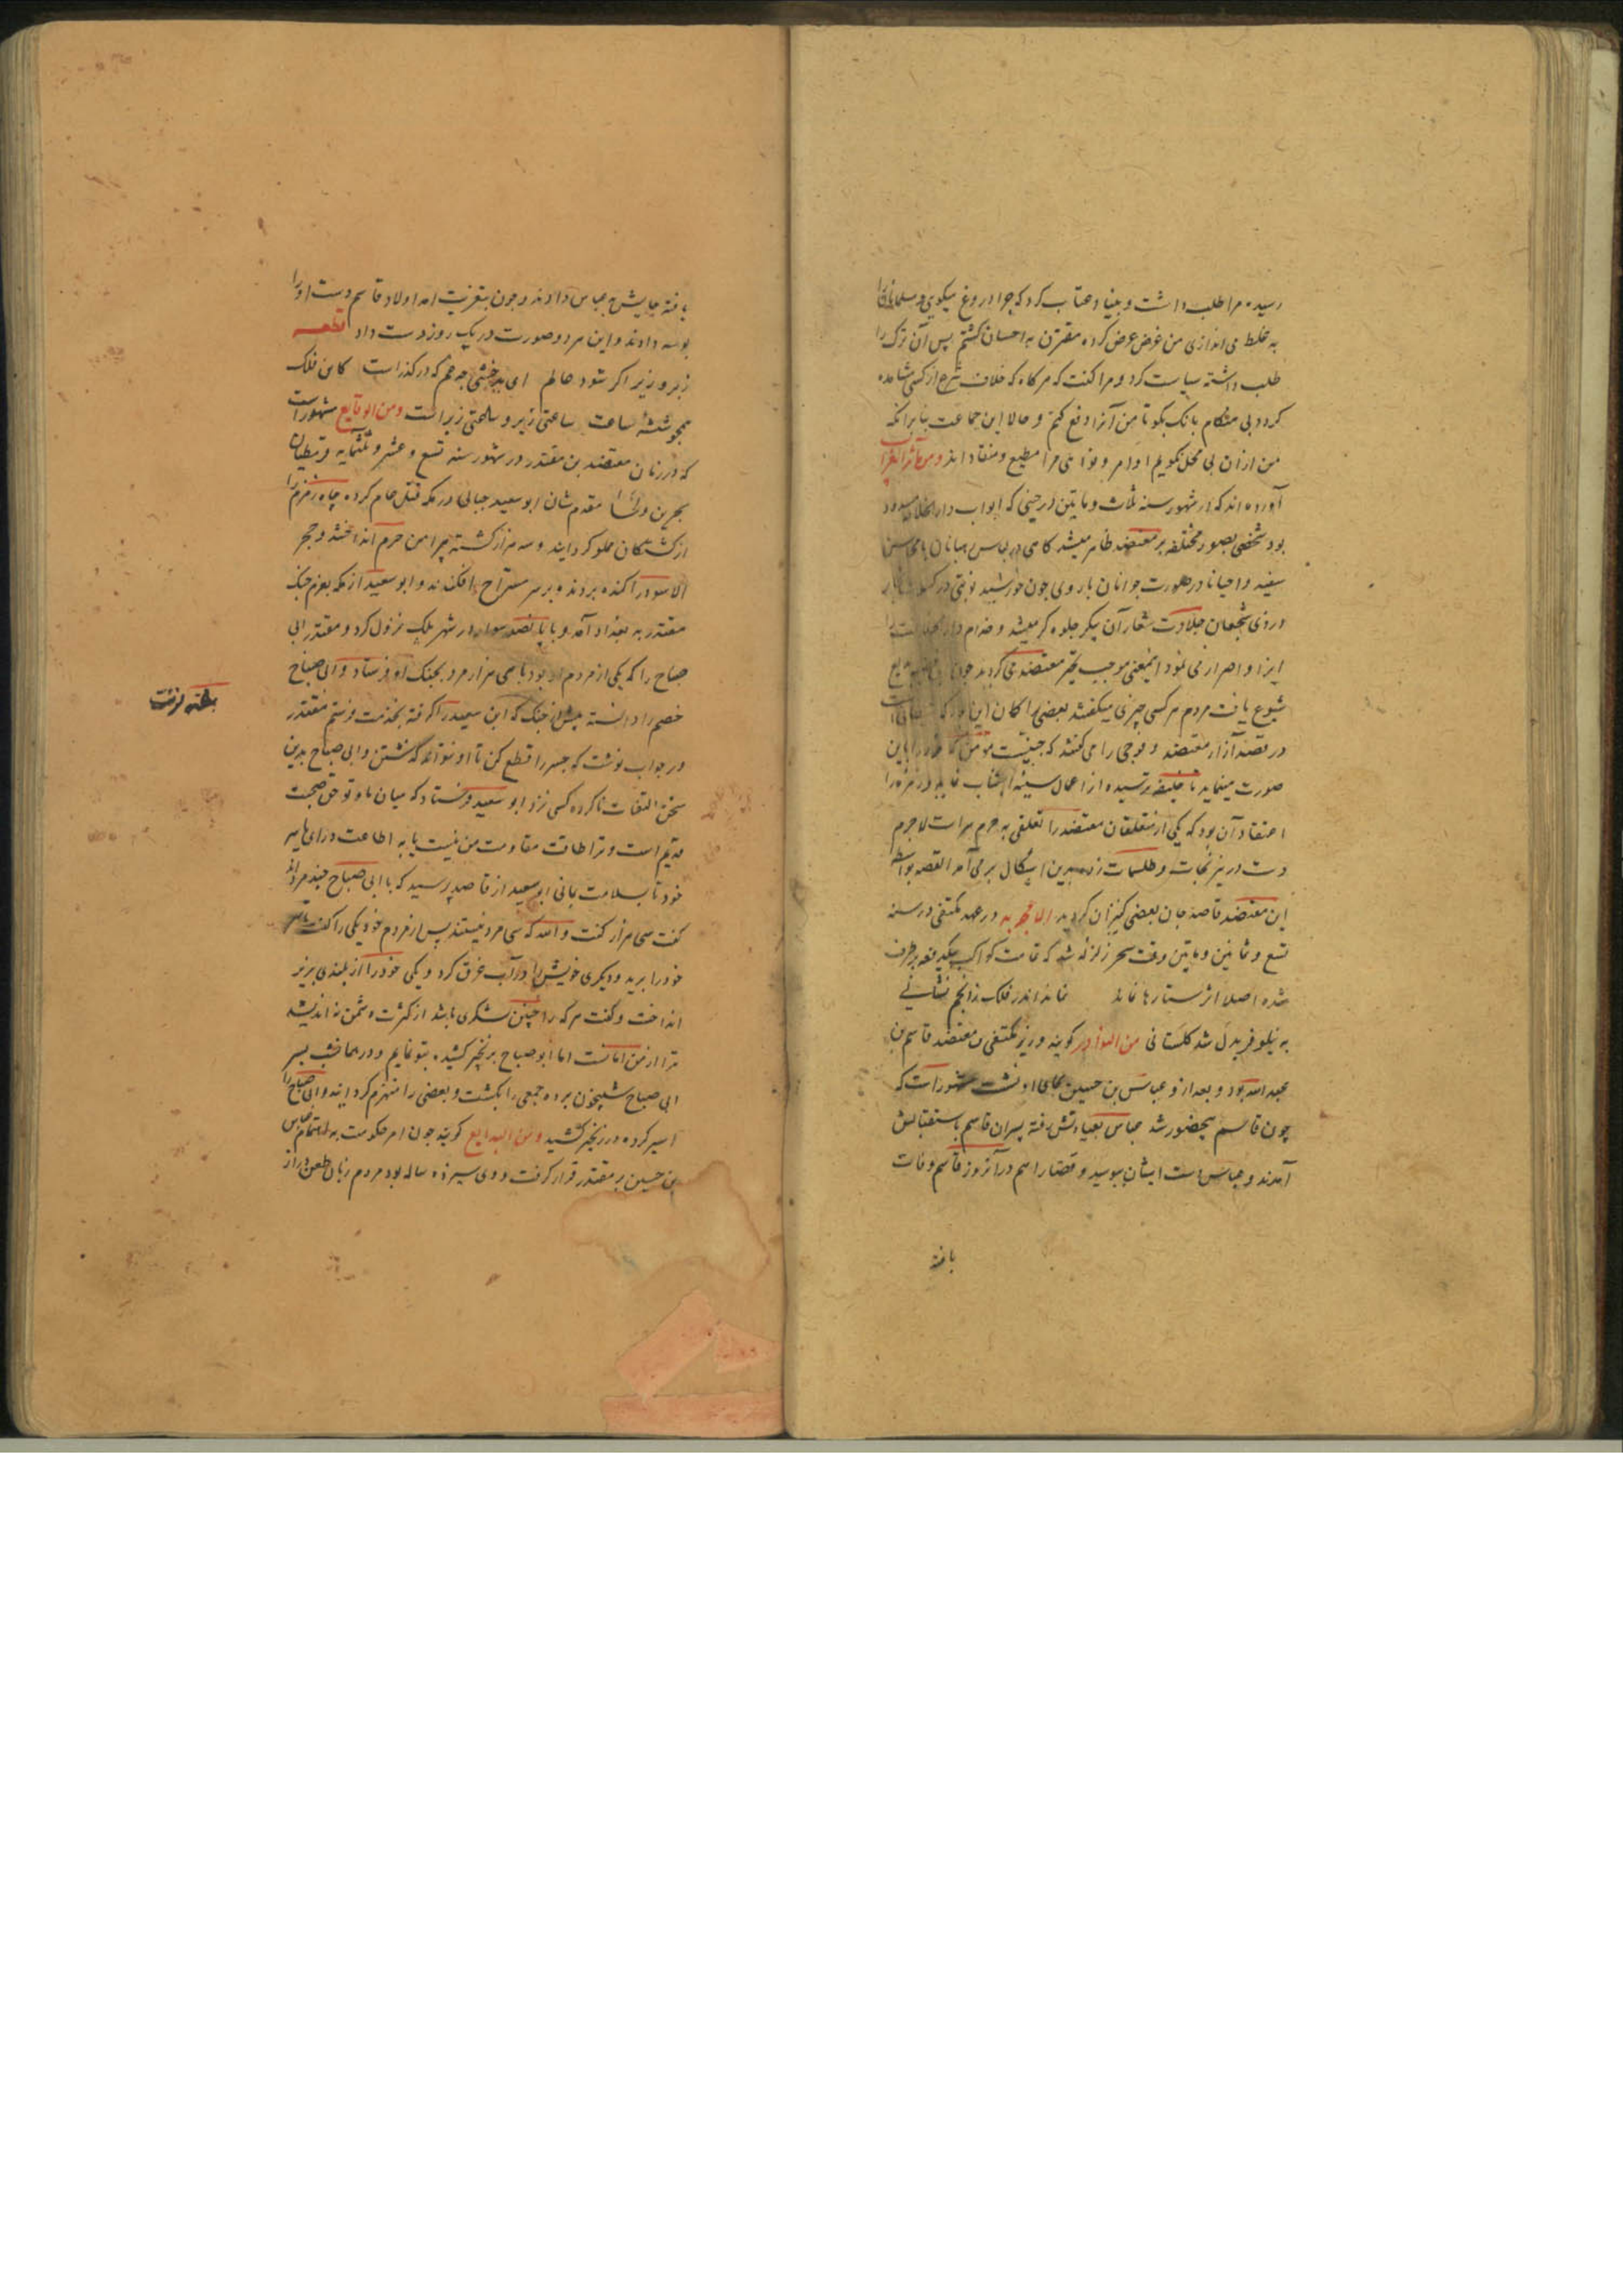 رسیده مرا طلب داشت و بنیاد عتاب کرد که چرا دروغ میکوی و مسلمانان را
به غلط می اندازی من غرض عرض کرده مقترن به احسان کشتم پس آن ترک را
طلب داشته سیاست کرد و مرا کفت که هر کاه که خلاف شرع از کسی مشاهده
کرد بی هنکام بانک بکو تا من آنرا دفع کنم و حالا این جماعت بنابر آنکه
من اذان بی محل نکویم اوامر و نواهی مرا مطیع و منقاد اند و من
آورده اند که در شهور سنه ثلاث و مایتین در حینی که ابواب دار الخلافه مسدود
بود شخصی بصور مختلفه بر معتضد ظاهر میشد کاهی در لباس رهبانان با محاسن
سفید و احیانا در صورت جوانان با روی چون خورشید نوبتی در
و روزی شجعان جلادت شعار آن پیکر جلوه کر میشد و خدام دار الخلافت را
ایذا و اضرار می نمود اینمعنی موجب تحیر معتضد می کردید چون این
شیوع یافت مردم هر کسی چیزی میکفتند بعضی را کمان این بود که شیطانی است
در قصد آزار معتضد و فوجی را می کفتند که جنیست مومن که خود را باین
صورت مینماید تا خلیفه ترسیده از اعمال سیئه اجتناب نماید و زمره را
اعتقاد آن بود که یکی از متعلقان معتضد را تعلقی به حرم سرا است لاجرم
دست در نیرنجات و طلسمات زده بدین اشکال برمی آمد القصه بواسطه
این معتضد قاصد جان بعضی کنیزان کردید در عهد مکتفی در سنه
تسع و ثمانین و مایتین وقت سحر زلزله شد که قامت کواکب بیکدفعه برطرف
شده اصلا اثر ستارها نماند نماند اندر فلک زانجم نشانی
به نیلوفر بدل شد کلستانی من النوادر کویند وزیر مکتفی بن معتضد قاسم بن
عبد الله بود و بعد ازو عباس بن حسین بجای او نشست مشهور است که
چون قاسم بیحضور شد عباس بعیادتش رفته پسران قاسم باستقبالش
آمدند و عباس دست ایشان ببوسید و قضا را هم در آنروز قاسم وفات
یافته
یافته جایش به عباس دادند و چون بتعزیت آمد اولاد قاسم دست او را
بوسه دادند و این هر دو صورت در یک روز دست داد قطعه
زبر و زیر اکر شود عالم ای چه غم که در کذر است کاین فلک
همچو شیشه ساعت ساعتی زیر و ساعتی زبر است و من الوقایع مشهور است
که در زمان معتضد بن مقتدر در شهور سنه تسع و عشر و ثلثمایه قرمطیان
بحرین و لحسا مقدم شان ابو سعید جبائی در مکه قتل عام کرده چاه زمزم را
از کشتکان مملو کردانید و سه هزار کشته پیرامن حرم انداختند و حجر
الاسود را کنده بردند و بر سر مستراح افکندند و ابو سعید از مکه بعزم جنک
مقتدر به بغداد آمد و با پانصد سوار در شهر بلک نزول کرد و مقتدر ابی
صباح را که یکی از مردم او بود با سی هزار مرد بجنک او فرستاد و ابی صباح
خصم را دانسته پیش از جنک که ابن سعید را کرفته بخدمت فرستم مقتدر
در جواب نوشت که جسر را قطع کن تا او نتواند کذشتن و ابی صباح بدین
سخن التفات ناکرده کسی نزد ابو سعید فرستاد که میان ما و تو حق صحبت
قدیم است و ترا طاقت مقاومت من نیست یا به اطاعت درای یا سر
خود تا بسلامت بمانی ابو سعید از قاصد پرسید که با ابی صباح چند مرد اند
کفت سی هزار کفت و الله که سی مرد نیستند پس از مردم خود یکی را کفت تا سر
خود را برید و دیکری خویش را در آب غرق کرد و یکی خود را از بلندی بزیر
انداخت و کفت هر که را چنین لشکری باشد از کثرت دشمن نه اندیشد
ترا از من امانست اما ابو صباح بزنجیر کشیده بتو نمایم و در همان شب بسر
ابی صباح شبیخون برده جمعی را بکشت و بعضی را منهزم کردانید و ابی صباح را
اسیر کرده در زنجیر کشید و من البدایع کویند چون امر حکومت به اهتمام عباس
بن حسین بر مقتدر قرار کرفت و وی سیزده ساله بود مردم زبان طعن دراز